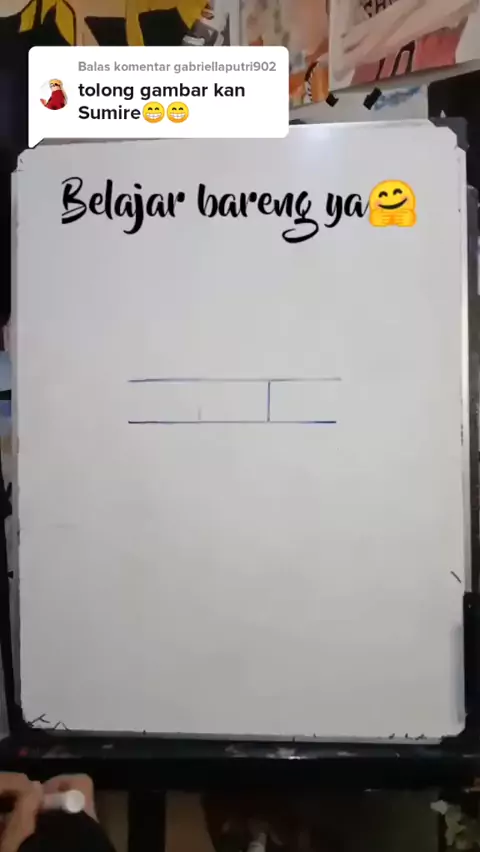 Balas komentar gabriellaputri902
tolong gambar kan
Sumire😁😁
Belajar bareng ya🤗